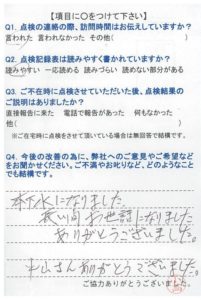 【項目に○をつけて下さい】
Q1. 点検の連絡の際、訪問時間はお伝えしていますか?
言われた 言われなかった その他(
Q2. 点検記録表は読みやすく書かれていますか?
読みやすい 一応読める 読みづらい 読めない部分がある
Q3. ご不在時に点検させていただいた後、点検結果の
ご説明はありましたか?
直接報告に来た 電話で報告があった 何もなかった
他(
※ご在宅時に点検をさせて頂いている場合は無回答で結構です。
Q4. 今後の改善の為に、弊社へのご意見やご希望など
をお聞かせください。ご不満やお叱りなど、どのようなこと
でも結構です。
本下水になりました。
長い間お世話になりました
ありがとうございました。
さんありがとうございました。
ご協力ありがとうございました。